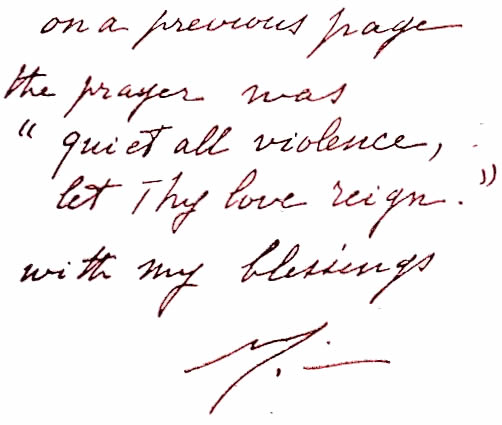 on a previous page
the prayer was
“quiet all violence,
let Thy love reign.”
with my blessings